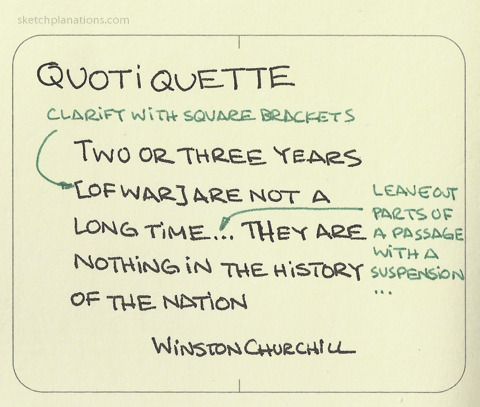 sketchplanations.com
QUOTIQUETTE
CLARIFY WITH SQUARE BRACKETS
TWO OR THREE YEARS
[OF WAR] ARE NOT A
LONG TIME... THEY ARE
NOTHING IN THE HISTORY
OF THE NATION
WINSTON CHURCHILL
LEAVE OUT
PARTS OF
A PASSAGE
WITH A
SUSPENSION
...